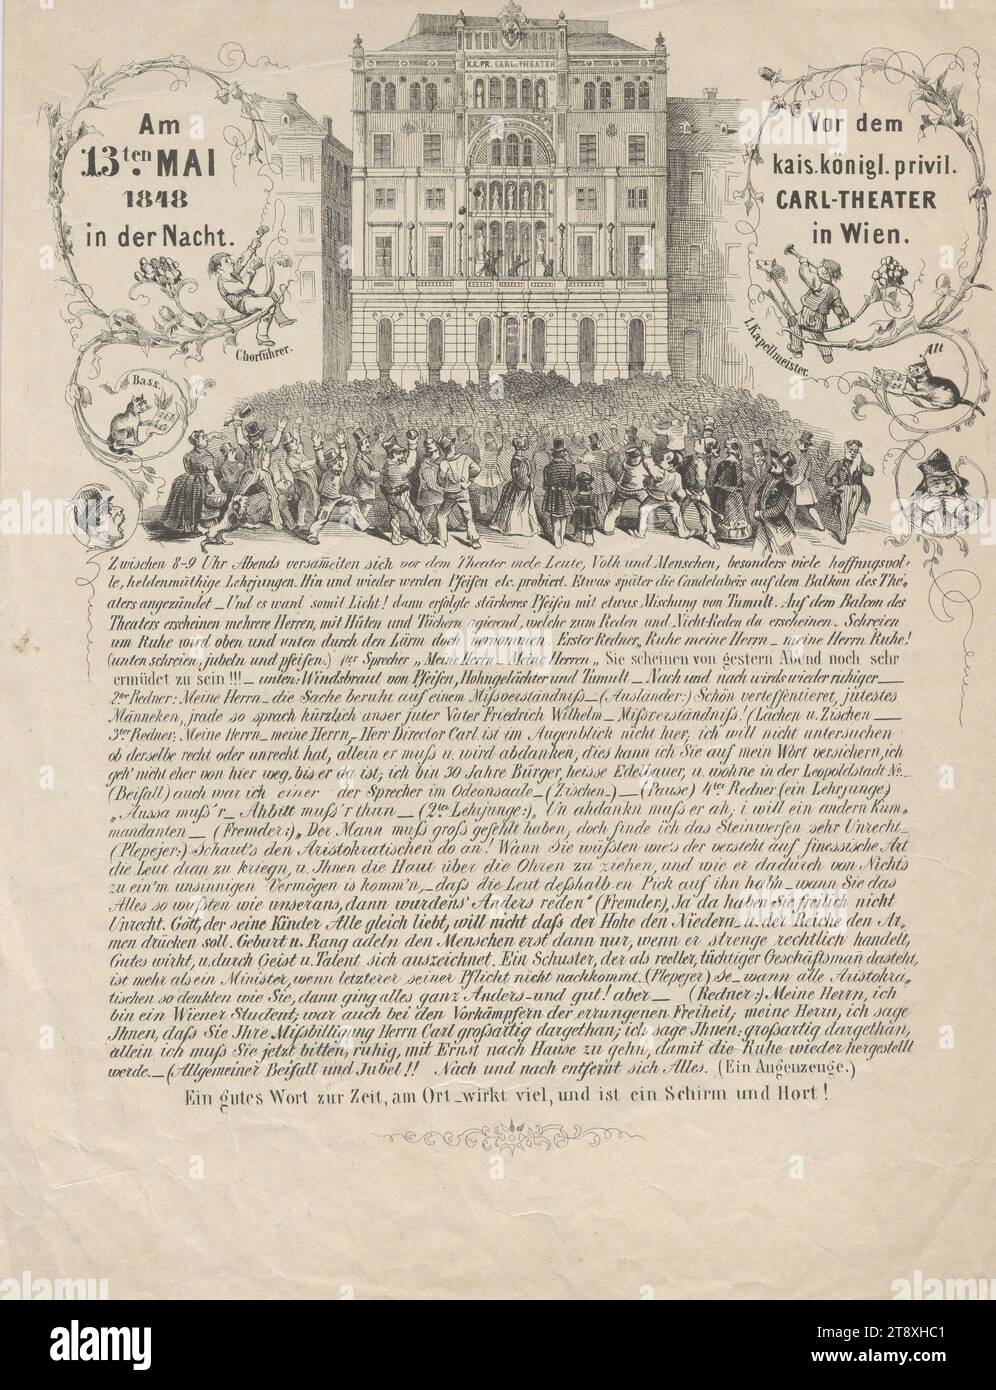 K.K. PR. CARL THEATER
Am
13ten MAI
1848
in der Nacht.
Vor dem
kais. königl. privil.
CARL-THEATER
in Wien.
Chorführer.
1. Kapellmeister.
Bass.
Alt
Zwischen 8-9 Uhr Abends versam̄elten sich vor dem Theater viele Leute, Volk und Menschen, besonders viele hoffnungsvol-
le, heldenmüthige Lehrjungen. Hin und wieder werden Pfeifen etc. probiert. Etwas später die Candelabers auf dem Balkon des The„
aters angezündet _ Und es ward somit Licht! dann erfolgte stärkeres Pfeifen mit etwas Mischung von Tumult. Auf dem Balcon des
Theaters erscheinen mehrere Herren, mit Hüten und Tüchern agierend, welche zum Reden und Nicht-Reden da erscheinen. Schreien
um Ruhe wird oben und unten durch den Lärm doch vernommen. Erster Redner „Ruhe meine Herrn _ meine Herrn Ruhe!
(unten schreien, jubeln und pfeifen.) 1ter Sprecher „Meine Herrn _ Meine Herren„ Sie scheinen von gestern Abend noch sehr
ermüdet zu sein!!! _ unten: Windsbraut von Pfeifen, Hohngelächter und Tumult _ Nach und nach wirds wieder ruhiger _
2ter Redner: Meine Herrn _ die Sache beruht auf einem Missverständniss _ (Ausländer:) Schön verteffentieret, jütestes
Männeken, jrade so sprach kürzlich unser juter Vater Friedrich Wilhelm _ Missverständniss! (Lachen u. Zischen _
3ter Redner: Meine Herrn _ meine Herrn „Herr Director Carl ist im Augenblick nicht hier; ich will nicht untersuchen
ob derselbe recht oder unrecht hat, allein er muss u. wird abdanken, dies kann ich Sie auf mein Wort versichern, ich
geh' nicht eher von hier weg, bis er da ist; ich bin 30 Jahre Bürger, heisse Edelbauer, u. wohne in der Leopoldstadt No...
(Beifall) auch war ich einer der Sprecher im Odeonsaale _ (Zischen _) _ (Pause) 4ter Redner (ein Lehrjunge)
„Aussa muss'r _ Abbitt muss'r thun _ (2ter Lehrjunge:) „Un ahdankn muss er ah; i will ein andern Kum_
mandanten _ (Fremder:) „Der Mann muss gross gefehlt haben, doch finde ich das Steinwerfen sehr Unrecht _
(Plepejer:) Schaut's den Aristokratischen do an! Wann Sie wüssten wie's der versteht auf finessische Art
die Leut dran zu kriegn, u. Ihnen die Haut über die Ohren zu ziehen, und wie er dadurch von Nichts
zu ein'm unsinnigen Vermögen is komm'n, _ dass die Leut desshalb en Pick auf ihn hab'n _ wann Sie das
Alles so wüssten wie unserans, dann wurdens' Anders reden" (Fremder:) „Ja da haben Sie freilich nicht
Unrecht. Gott, der seine Kinder Alle gleich liebt, will nicht dass der Hohe den Niedern _ u. der Reiche den Ar„
men drücken soll. Geburt u. Rang adeln den Menschen erst dann nur, wenn er strenge rechtlich handelt,
Gutes wirkt, u. durch Geist u. Talent sich auszeichnet. Ein Schuster, der als reeller, tüchtiger Geschäftsman dasteht,
ist mehr als ein Minister, wenn letzterer seiner Pflicht nicht nachkommt. (Plepejer) Je _ wann alle Aristokra„
tischen so denkten wie Sie, dann ging alles ganz Anders _ und gut! aber _ (Redner:) Meine Herrn, ich
bin ein Wiener Student; war auch bei den Vorkämpfern der errungenen Freiheit; meine Herrn, ich sage
Ihnen, dass Sie Ihre Missbilligung Herrn Carl grossartig dargethan; ich sage Ihnen: grossartig dargethan,
allein ich muss Sie jetzt bitten, ruhig, mit Ernst nach Hause zu gehn, damit die Ruhe wieder hergestellt
werde. _ (Allgemeiner Beifall und Jubel!! Nach und nach entfernt sich Alles. (Ein Augenzeuge.)
Ein gutes Wort zur Zeit, am Ort _ wirkt viel, und ist ein Schirm und Hort!
alamy
Image ID: 2T8XHC1
www.alamy.com